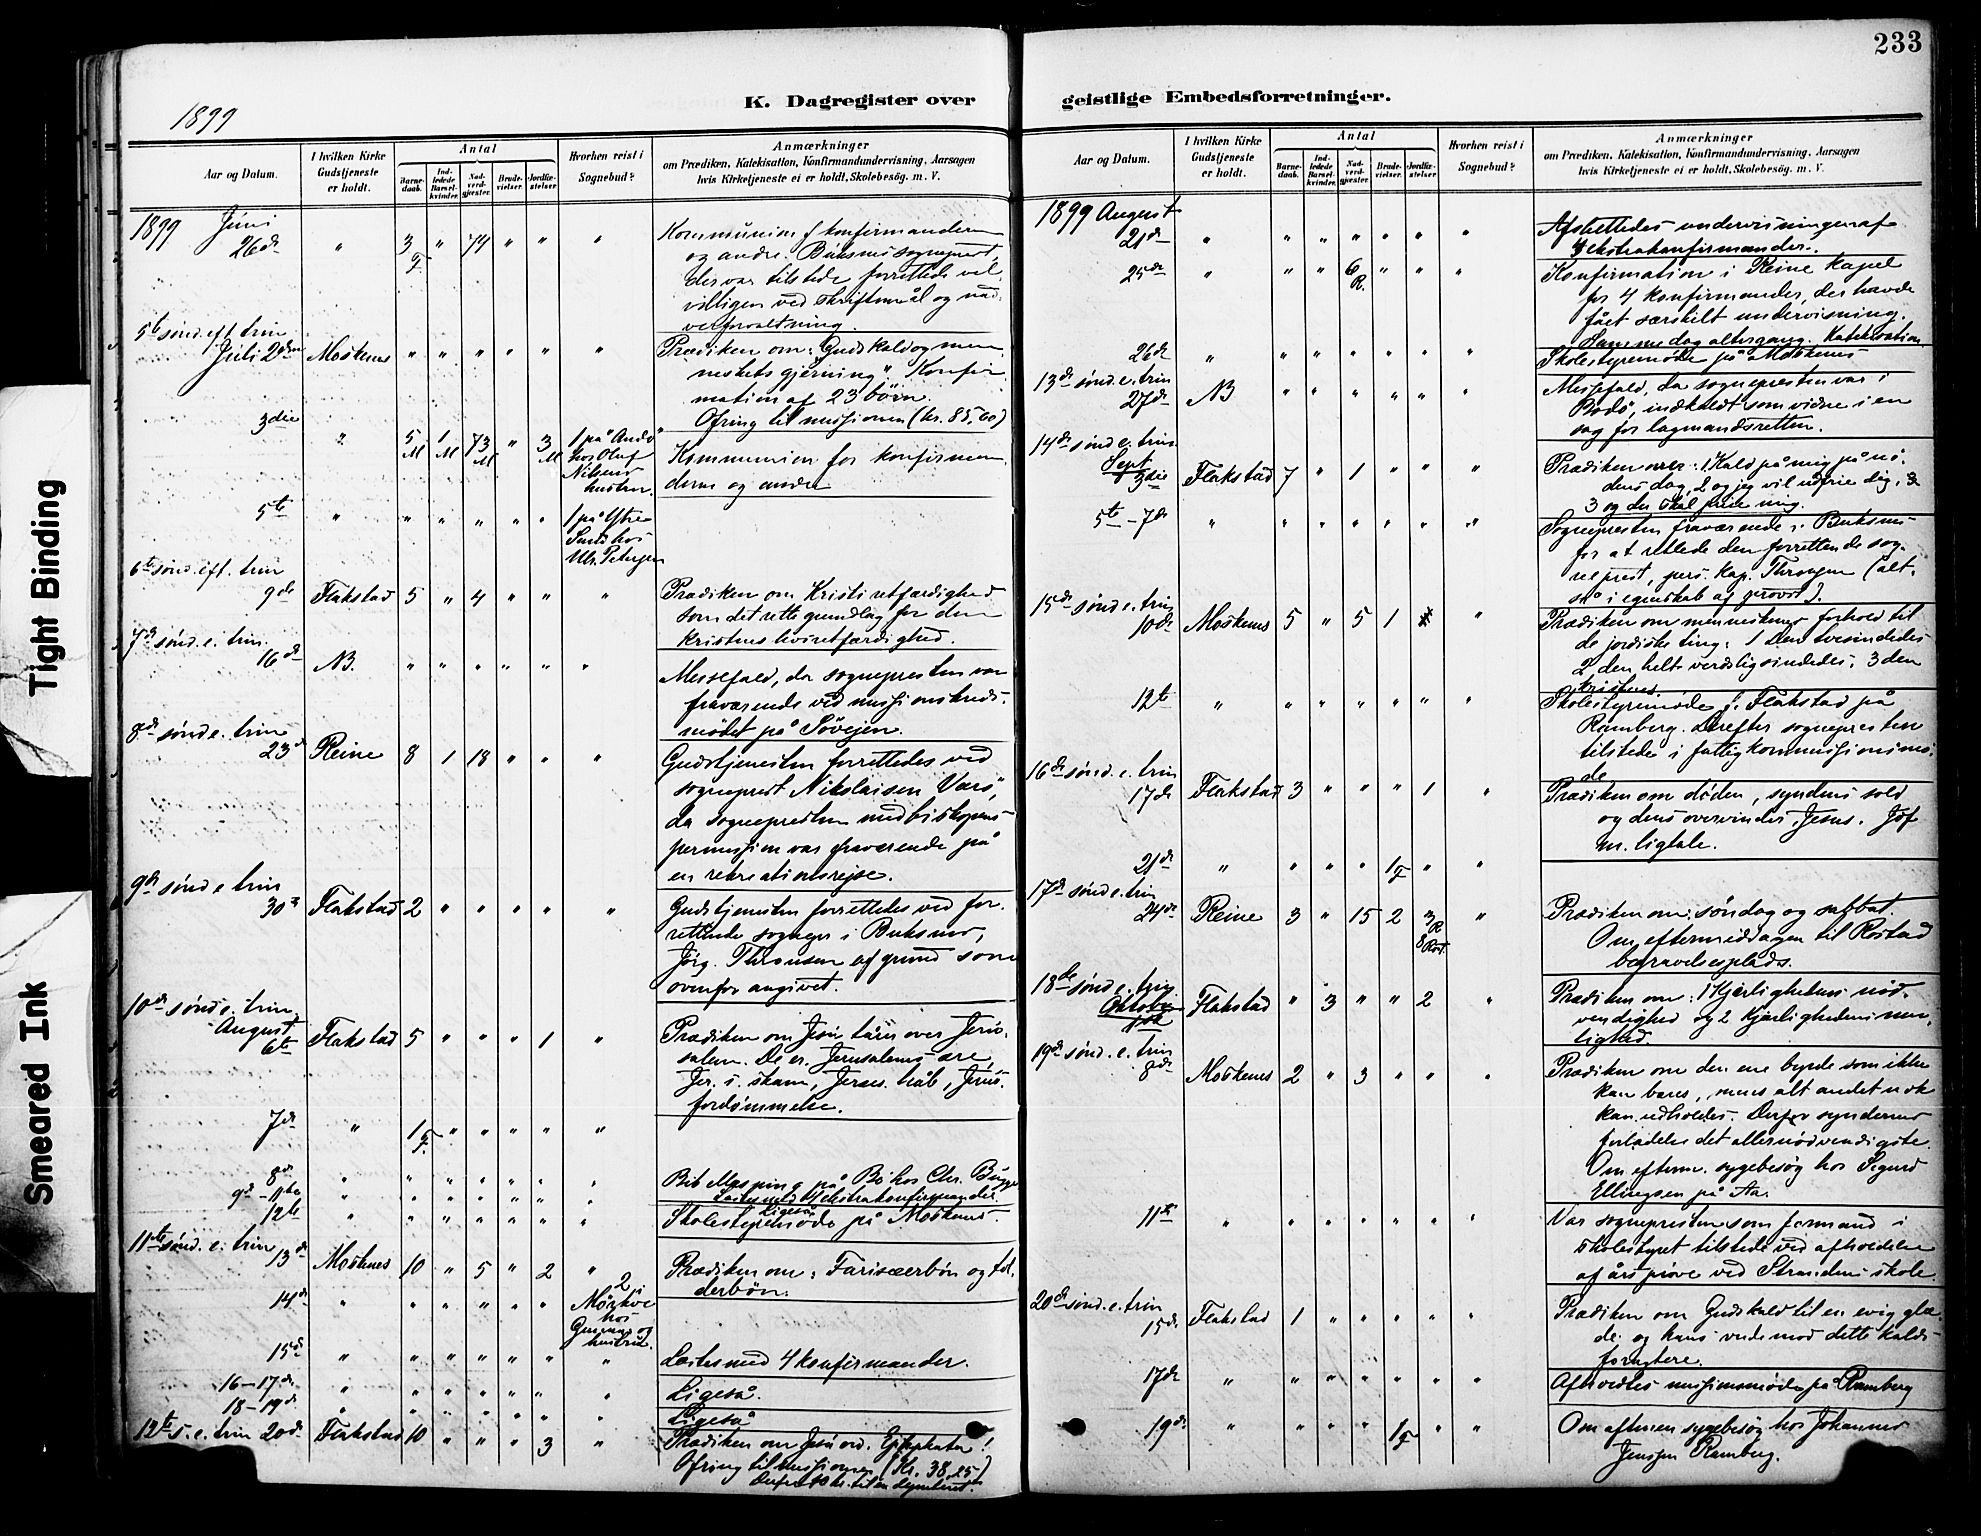 233
1899
K. Dagregister over geistlige Embedsforretninger.
Tight Binding
Smeared Ink
Aar og Datum.
I hvilken Kirke Gudstjeneste er holdt.
Antal
Barnedaab.
Indledede Barselkvinder.
Nadverdgjester.
Brudevielser.
Jordfæstelser.
Hvorhen reist i Sognebud?
Anmærkninger
om Prædiken, Katekisation, Konfirmandundervisning, Aarsagen
hvis Kirketjeneste ei er holdt, Skolebesøg. m. V.
1899 Juni
26de " 3 F " 74 " " " Kommunion f konfirmanderne
og andre. Buksnes sogneprest,
der var tilstede forrettede vel
villigen ved skriftemål og nad
verforvaltning.
5te sønd. eft. trin.
Juli 2den Moskenes " " " " " " Prædiken om: Guds kald og men
neskets gjerning". Konfir
mation af 23 börn.
Ofring til missionen (kr. 85,60)
3die " 5 M 1 M 73 M " 3 M 1 på Andö
hos Oluf
Nilsens
hustru.
Kommunion for konfirman
derne og andre
5te " " " " " " 1 på Ytre
Sund hos
Petersen
6te sønd. eft. trin
9de Flakstad 5 " 4 " " " Prædiken om Kristi retfærdighed
som det rette grundlag for den
kristnes livsretfærdighed.
7de sønd. e. trin.
16de NB. " " " " " " Messefald, da sognepresten var
fraværende ved missionskreds-
mødet på Søvejen.
8de sønd e. trin
23de Reine 8 1 18 " " " Gudstjenesten forrettedes ved
sogneprest Nikolaisen Værö,
da sognepresten med biskopens
permission var fraværende på
en rekreationsrejse.
9de sønd e trin
30te Flakstad 2 " " " " " Gudstjenesten forrettedes ved for-
rettende sognepr i Buksnes,
Jörg. Thronsen af grund som
ovenfor angivet.
10de sønd e. trin
August
6te Flakstad 5 " " " 1 " Prædiken om Jesu tårer over Jeru-
salem. De er Jerusalems ære,
Jer. s. skam, Jerus. håb, Jerus.
fordömmelse.
7de " 1 F " " " " "
8de " " " " " " " på Bö hos Chr. Bugge
9de - 11te " " " " " " " Læstes med 4 ekstrakonfirmander
12te " " " " " " " Ligeså
Skolestyremøde på Moskenes.
11te sønd. e. trin
13de Moskenes 10 " 5 " 2 " Prædiken om: Farisæerbön og tol-
derbön.
14de " " " " " " 2
hos
Gunnar og
hustru.
15de " " " " " " " Læstes med 4 konfirmander.
16-17de " " " " " " " Ligeså.
18-19de " " " " " " " Ligeså
12te s. e. trin 20de Flakstad 10 " " " 3 " Prædiken om Jesu ord. Effphata!
Ofring til missionen (kr. 38,25)
Aar og Datum.
I hvilken Kirke Gudstjeneste er holdt.
Antal
Barnedaab.
Indledede Barselkvinder.
Nadverdgjester.
Brudevielser.
Jordfæstelser.
Hvorhen reist i Sognebud?
Anmærkninger
om Prædiken, Katekisation, Konfirmandundervisning, Aarsagen
hvis Kirketjeneste ei er holdt, Skolebesøg. m. V.
1899 August
21de " " " " " " " Afsluttedes undervisningen af
4 ekstrakonfirmander.
25de " " " 6 R. " " " Konfirmation i Reine Kapel
for 4 konfirmander, der havde
fået særskilt undervisning.
Samme dag altergang. Katekisation
26de " " " " " " " Skolestyremøde på Moskenes
13de sønd. e. trin
27de NB " " " " " " Messefald, da sognepresten var i
Bodö, indkaldt som vidne i en
sag for lagmandsretten.
14de sønd e. trin.
Sept.
3die Flakstad 7 " 1 " " " Prædiken over: 1 Kald på mig på nö-
dens dag, 2 og jeg vil udfrie dig, &
3 og du skal prise mig.
5te - 7de " " " " " " " Sognepresten fraværende i Buksnes
for at veilede den forrettende sog-
neprest, pers. kap. Thronsen (alt-
så i egenskab af provst).
15de sønd e. trin
10de Moskenes 5 " 5 1 " Prædiken om menneskenes forhold til
de jordiske ting: 1 Den tvesindedes
2 den helt verdsligsindedes, 3 den
kristnes.
12te " " " " " " " Skolestyremøde f. Flakstad på
Ramberg. Derefter sognepresten
tilstede i fattigkommissionsmö-
de
16de sønd. e. trin
17de Flakstad 3 " " " 1 " Prædiken om döden, syndens sold
og dens overvinder, Jesus. Jdf
m. ligtale.
21de " " " " 1 F " "
17de sønd e. trin
24de Reine 3 " 15 2 3 R 8 Rost. " Prædiken om: söndag og sabbat.
Om eftermiddagen til Rostad
begravelsesplads.
18de sønd e. trin
Oktober
1ste Flakstad " 3 " " 2 " Prædiken om: 1 Kjærlighedens nöd-
vendighed og 2 Kjærlighedens mu-
lighed.
19de sønd. e. trin
8de Moskenes 2 " 3 " " " Prædiken om den ene byrde som ikke
kan bæres, mens alt andet nok
kan udholdes. Derfor syndernes
forladelse det allernødvendigste.
Om efterm. sygebesøg hos Sigurd
Ellingsen på Aa.
11te " " " " " " " Var sognepresten som formand i
skolestyret tilstede ved afholdelse
af årspröve ved Strandens skole.
20de sønd. e. trin
15de Flakstad 1 " " " " " Prædiken om Guds kald til en evig glæ-
de og hans vrede mod dette kalds
foragtere.
17de " " " " " " " Afholdtes missionsmøde på Ramberg
19de " " " " 1 F " " Om aftenen sygebesøg hos Johannes
Jenssen Ramberg.